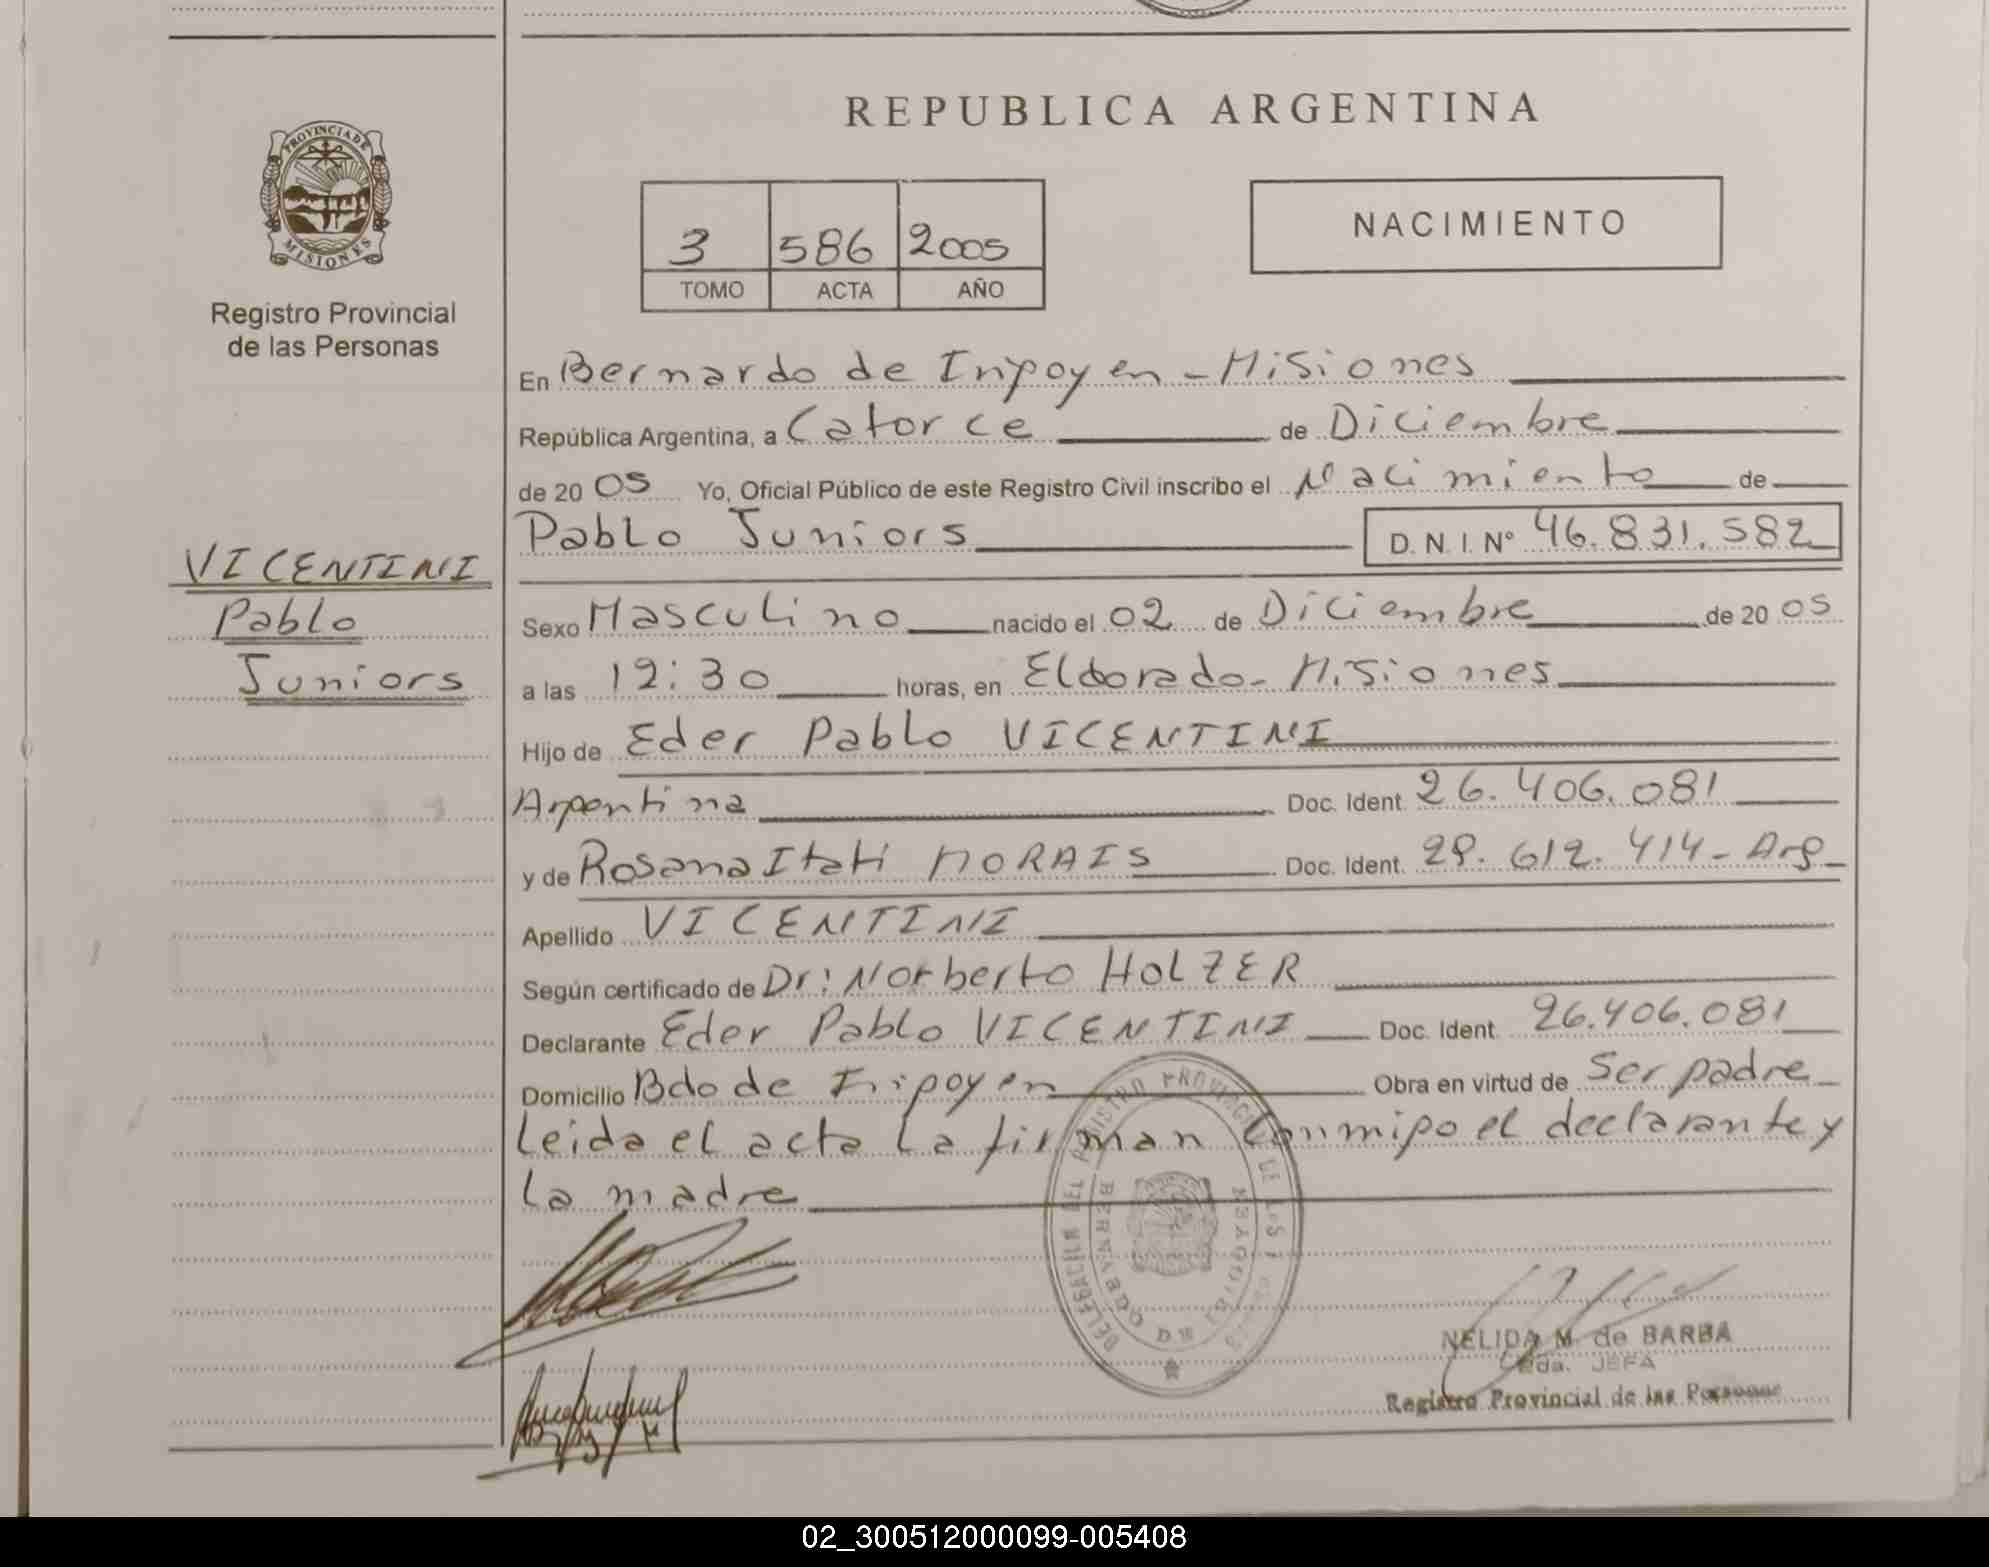 REPUBLICA ARGENTINA
PROVINCIA DE
MISIONES
Registro Provincial
de las Personas
3 586 2005
TOMO ACTA AÑO
NACIMIENTO
VICENTINI
Pablo
Juniors
En Bernardo de Irigoyen - Misiones
República Argentina, a Catorce de Diciembre
de 2005 Yo, Oficial Público de este Registro Civil inscribo el Nacimiento de
Pablo Juniors D.N.I. Nº 46.831.582
Sexo Masculino nacido el 02 de Diciembre de 2005
a las 12:30 horas, en Eldorado - Misiones
Hijo de Eder Pablo VICENTINI
Argentina Doc. Ident. 26.406.081
y de Rosana Itati MORAIS Doc. Ident. 29.612.414 - Arg
Apellido VICENTINI
Según certificado de Dr: Norberto HOLZER
Declarante Eder Pablo VICENTINI Doc. Ident. 26.406.081
Domicilio Bdo de Irigoyen Obra en virtud de Ser padre
Leida el acta la firman Conmigo el declarante y
la madre
NELIDA M. de BARBA
JEFA
Registro Provincial de las Personas
02_300512000099-005408